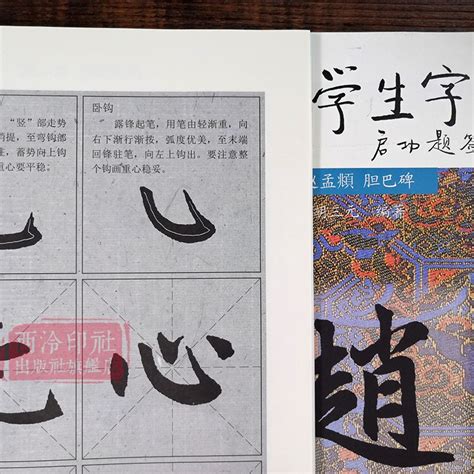 “竖”部走势
提，至弯钩部
，蓄势向上钩
重心要平稳。
卧钩
露锋起笔，用笔由轻渐重，向
右下渐行渐按，弧度优美，至末端
回锋驻笔，向左上钩出。要注意
整个钩画重心稳妥。
心
学生字
启功题
赵孟頫 胆巴碑
编著
趙
西泠印社
出版社旗舰店